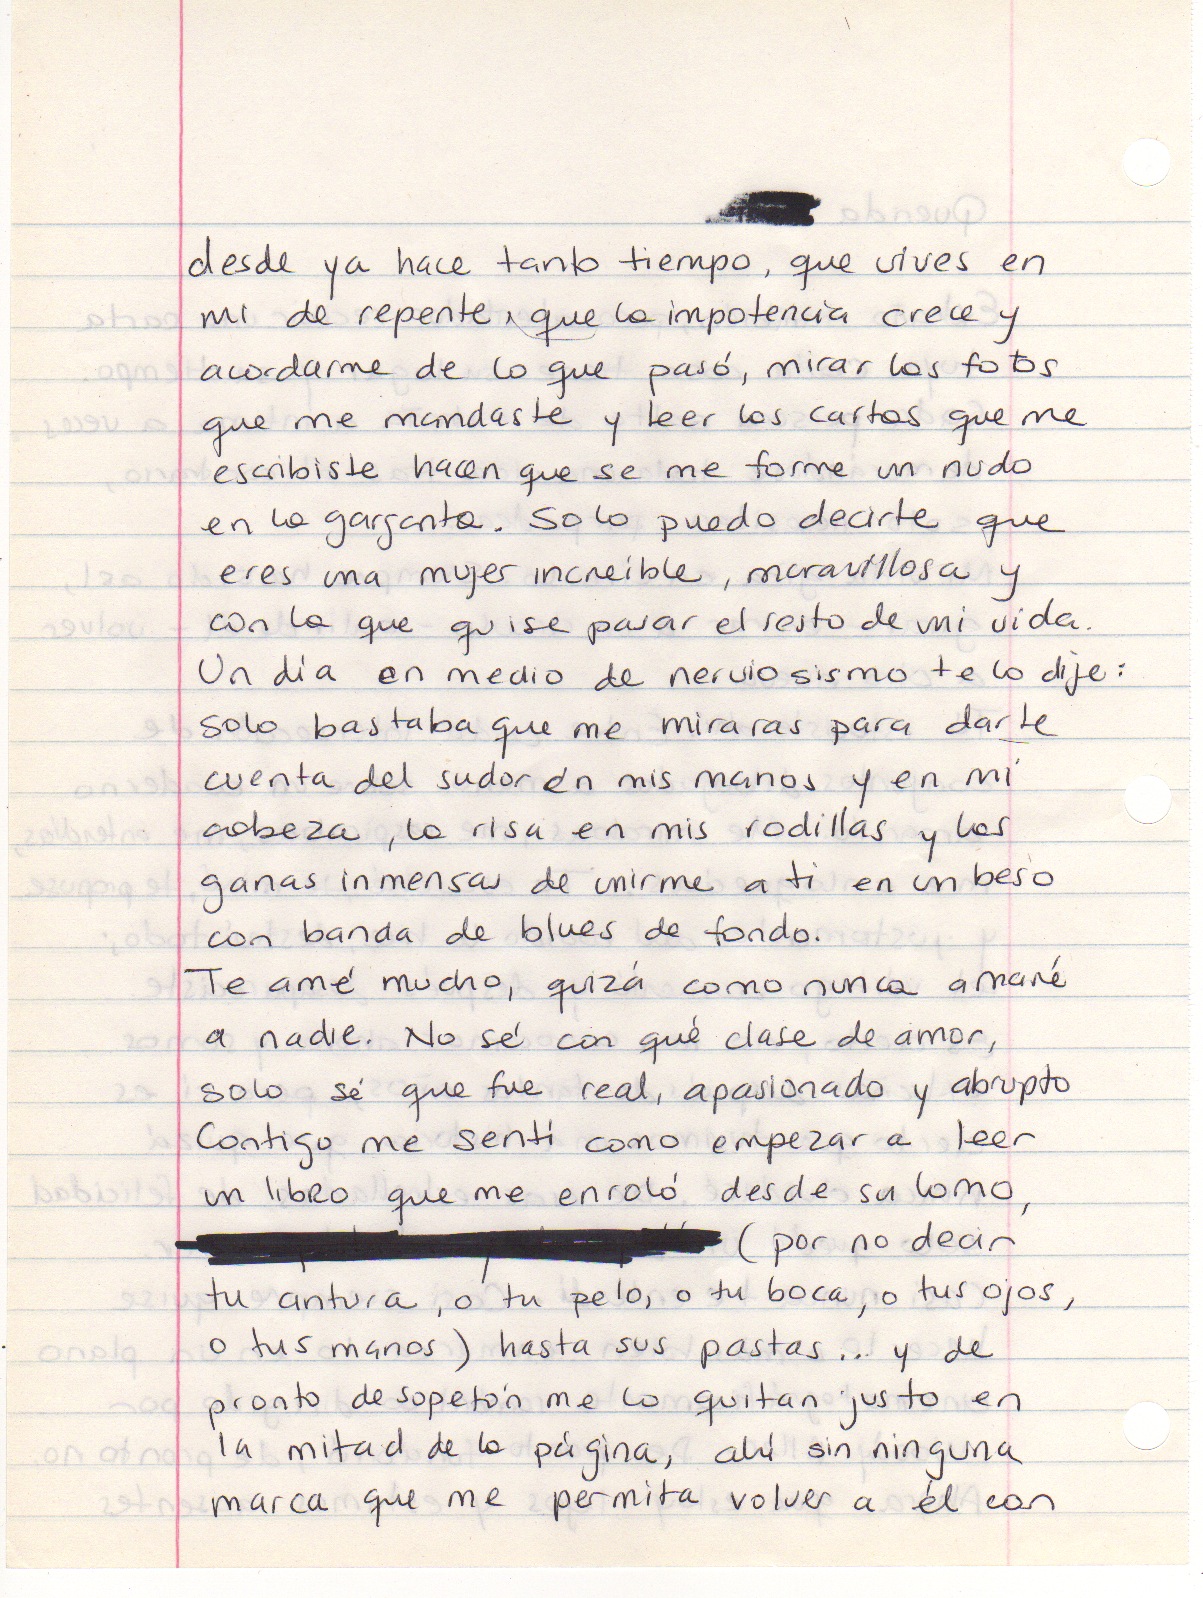 desde ya hace tanto tiempo, que vives en
mi de repente, que la impotencia crece y
acordarme de lo que pasó, mirar las fotos
que me mandaste y leer las cartas que me
escribiste hacen que se me forme un nudo
en la garganta. Solo puedo decirte que
eres una mujer increíble, maravillosa y
con la que quise pasar el resto de mi vida.
Un día en medio de nerviosismo te lo dije:
solo bastaba que me miraras para darte
cuenta del sudor en mis manos y en mi
cabeza, la risa en mis rodillas y las
ganas inmensas de unirme a ti en un beso
con banda de blues de fondo.
Te amé mucho, quizá como nunca amaré
a nadie. No sé con qué clase de amor,
solo sé que fue real, apasionado y abrupto
Contigo me sentí como empezar a leer
un libro que me enroló desde su lomo,
(por no decir
tu cintura, o tu pelo, o tu boca, o tus ojos,
o tus manos) hasta sus pastas... y de
pronto de sopetón me lo quitan justo en
la mitad de la página, ahí sin ninguna
marca que me permita volver a él con